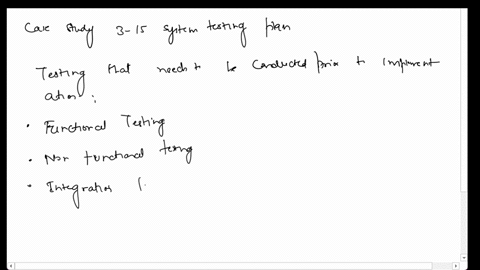 Case Study 3-15 System testing plan
Testing that needs to be Conducted prior to implement
ation :
• Functional Testing
• Non functional
• Integration (